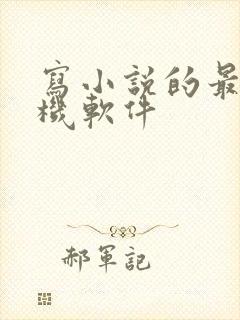 寫小說的最
機軟件
郝軍記